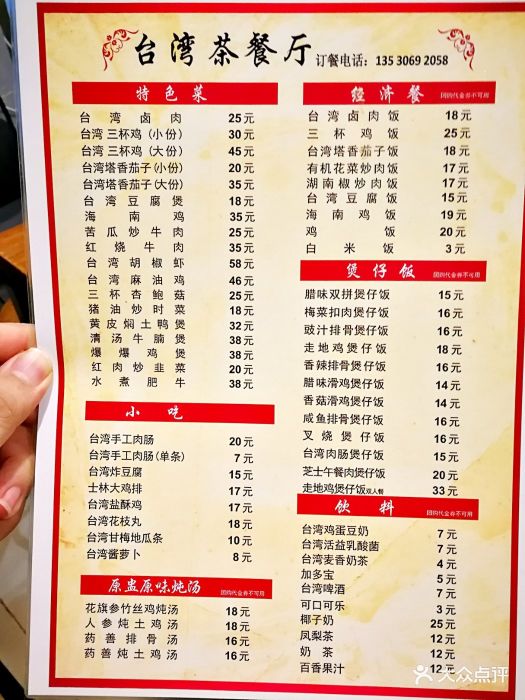 台湾茶餐厅 订餐电话：135 3069 2058
特色菜
台湾卤肉 25元
台湾三杯鸡(小份) 30元
台湾三杯鸡(大份) 45元
台湾塔香茄子(小份) 20元
台湾塔香茄子(大份) 35元
台湾豆腐煲 18元
海南鸡 35元
苦瓜炒牛肉 25元
红烧牛肉 35元
台湾胡椒虾 58元
台湾麻油鸡 46元
三杯杏鲍菇 25元
猪油炒时菜 18元
黄皮焖土鸭煲 32元
清汤牛腩煲 38元
爆爆鸡煲 38元
红肉炒韭菜 20元
水煮肥牛 38元
小吃
台湾手工肉肠 20元
台湾手工肉肠(单条) 7元
台湾炸豆腐 15元
士林大鸡排 17元
台湾盐酥鸡 17元
台湾花枝丸 18元
台湾甘梅地瓜条 10元
台湾酱萝卜 8元
原盅原味炖汤 团购代金券不可用
花旗参竹丝鸡炖汤 18元
人参炖土鸡汤 18元
药善排骨汤 16元
药善炖土鸡汤 16元
经济餐 团购代金券不可用
台湾卤肉饭 18元
三杯鸡饭 25元
台湾塔香茄子饭 18元
有机花菜炒肉饭 17元
湖南椒炒肉饭 17元
台湾豆腐饭 15元
海南鸡饭 19元
鸡饭 20元
白米饭 3元
煲仔饭 团购代金券不可用
腊味双拼煲仔饭 15元
梅菜扣肉煲仔饭 16元
豉汁排骨煲仔饭 16元
走地鸡煲仔饭 18元
香辣排骨煲仔饭 16元
腊味滑鸡煲仔饭 14元
香菇滑鸡煲仔饭 14元
咸鱼排骨煲仔饭 16元
叉烧煲仔饭 16元
台湾肉肠煲仔饭 15元
芝士午餐肉煲仔饭 20元
走地鸡煲仔饭双人餐 33元
饮料 团购代金券不可用
台湾鸡蛋豆奶 7元
台湾活益乳酸菌 7元
台湾麦香奶茶 4元
加多宝 5元
台湾啤酒 7元
可口可乐 3元
椰子奶 25元
凤梨茶 12元
奶茶 12元
百香果汁 12元
大众点评